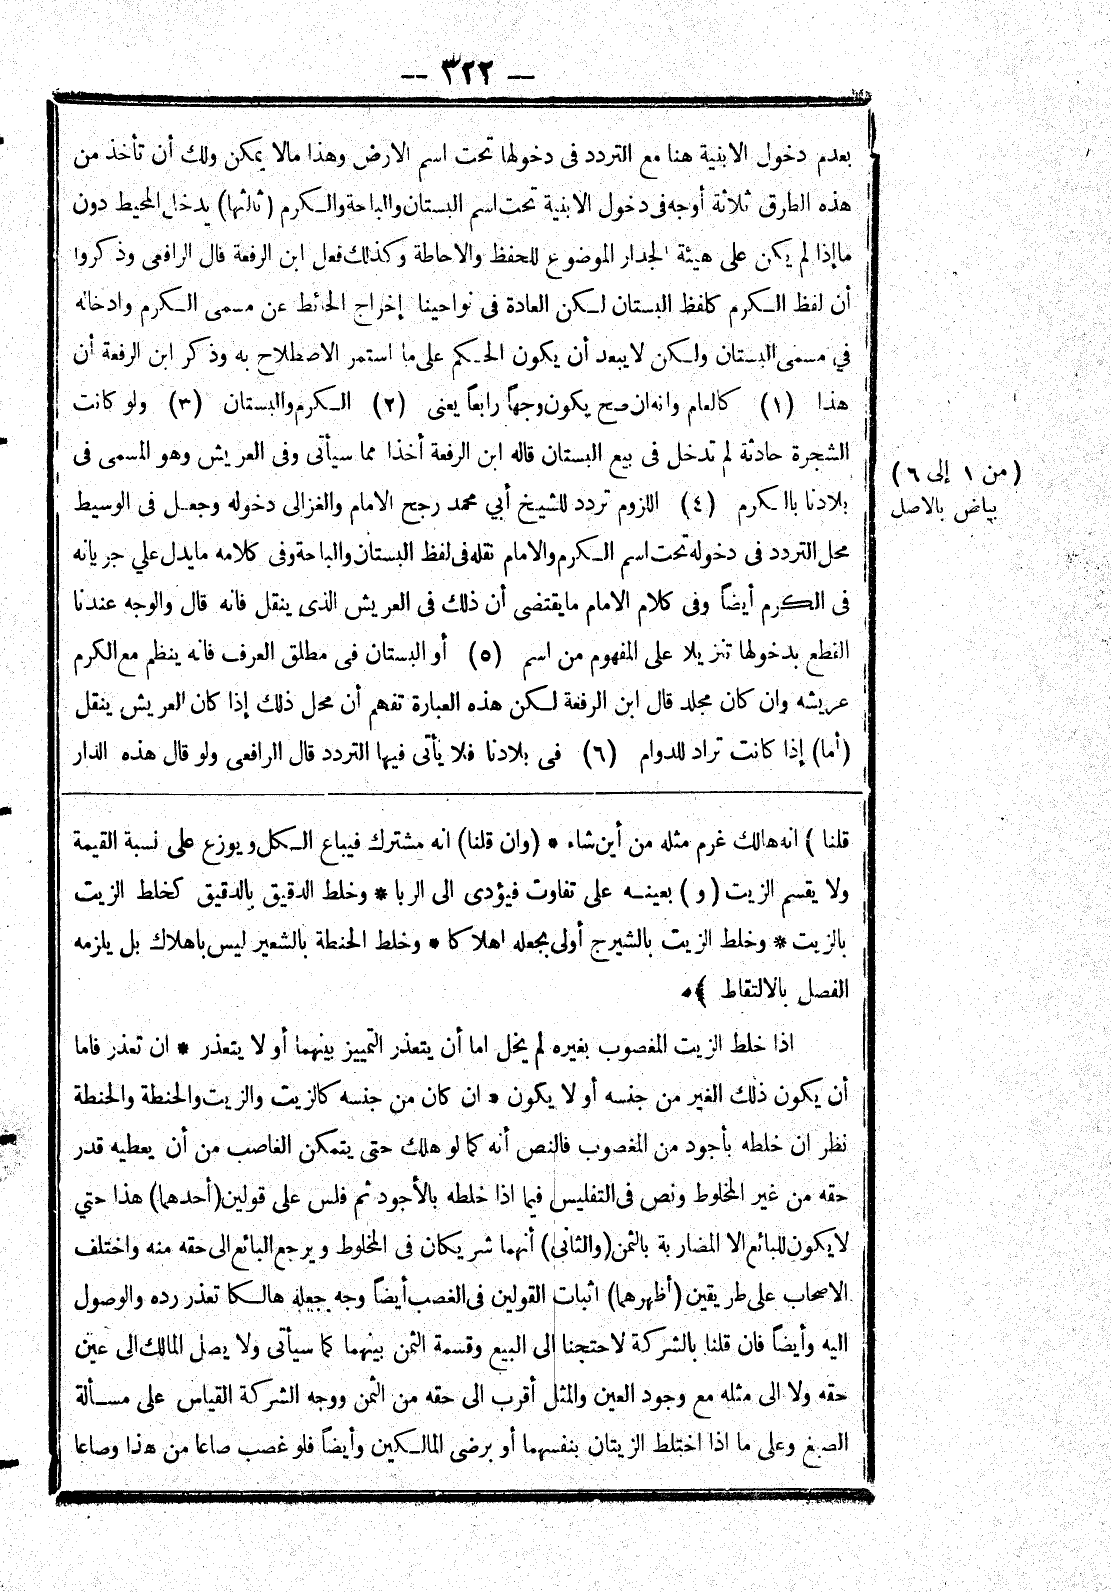 — ٣٢٢ —
بعدم دخول الابنية هنا مع التردد فى دخولها تحت اسم الارض وهذا مالا يمكن ولك أن تأخذ من
هذه الطرق ثلاثة أوجه فى دخول الابنية تحت اسم البستان والباحة والكرم (ثالثها) يدخل المحيط دون
ما إذا لم يكن على هيئة الجدار الموضوع للحفظ والاحاطة وكذلك فعل ابن الرفعة قال الرافعى وذكروا
أن لفظ الكرم كلفظ البستان لكن العادة فى نواحينا إخراج الحائط عن مسمى الكرم وادخاله
في مسمى البستان ولكن لا يبعد أن يكون الحكم على ما استمر الاصطلاح به وذكر ابن الرفعة أن
هذا (١) كالعام وانه ان صح يكون وجهاً رابعاً يعنى (٢) الكرم والبستان (٣) ولو كانت
الشجرة حادثة لم تدخل فى بيع البستان قاله ابن الرفعة أخذا مما سيأتى وفى العريش وهو المسمى فى
(من ١ إلى ٦)
بياض بالاصل
بلادنا بالكرم (٤) اللزوم تردد للشيخ أبي محمد رجح الامام والغزالى دخوله وجعل فى الوسيط
محل التردد فى دخوله تحت اسم الكرم والامام نقله فى لفظ البستان والباحة وفى كلامه مايدل علي جريانه
فى الكرم أيضاً وفى كلام الامام مايقتضى أن ذلك فى العريش الذى ينقل فانه قال والوجه عندنا
القطع بدخولها تنزيلا على المفهوم من اسم (٥) أو البستان فى مطلق العرف فانه ينظم مع الكرم
عريشه وان كان مجلد قال ابن الرفعة لكن هذه العبارة تفهم أن محل ذلك إذا كان العريش ينقل
(أما) إذا كانت تراد للدوام (٦) فى بلادنا فلا يأتى فيها التردد قال الرافعى ولو قال هذه الدار
قلنا ) انه هالك غرم مثله من أين شاء * (وان قلنا) انه مشترك فيباع الكل ويوزع على نسبة القيمة
ولا يقسم الزيت (و) بعينه على تفاوت فيؤدى الى الربا * وخلط الدقيق بالدقيق كخلط الزيت
بالزيت * وخلط الزيت بالشيرج أولى بجعله اهلاكا * وخلط الحنطة بالشعير ليس باهلاك بل يلزمه
الفصل بالالتقاط ﴾ *
اذا خلط الزيت المغصوب بغيره لم يخل اما أن يتعذر التمييز بينهما أو لا يتعذر * ان تعذر فاما
أن يكون ذلك الغير من جنسه أو لا يكون * ان كان من جنسه كالزيت والزيت والحنطة والحنطة
نظر ان خلطه بأجود من المغصوب فالنص أنه كما لو هلك حتى يتمكن الغاصب من أن يعطيه قدر
حقه من غير المخلوط ونص فى التفليس فيما اذا خلطه بالأجود ثم فلس على قولين (أحدهما) هذا حتي
لا يكون للبائع الا المضاربة بالثمن (والثانى) أنهما شريكان فى المخلوط ويرجع البائع الى حقه منه واختلف
الاصحاب على طريقين (أظهرهما) اثبات القولين فى الغصب أيضاً وجه جعله هالكا تعذر رده والوصول
اليه وأيضاً فان قلنا بالشركة لاحتجنا الى البيع وقسمة الثمن بينهما كما سيأتى ولا يصل المالك الى عين
حقه ولا الى مثله مع وجود العين والمثل أقرب الى حقه من الثمن ووجه الشركة القياس على مسألة
الصبغ وعلى ما اذا اختلط الزيتان بنفسهما أو برضى المالكين وأيضاً فلو غصب صاعا من هذا وصاعا